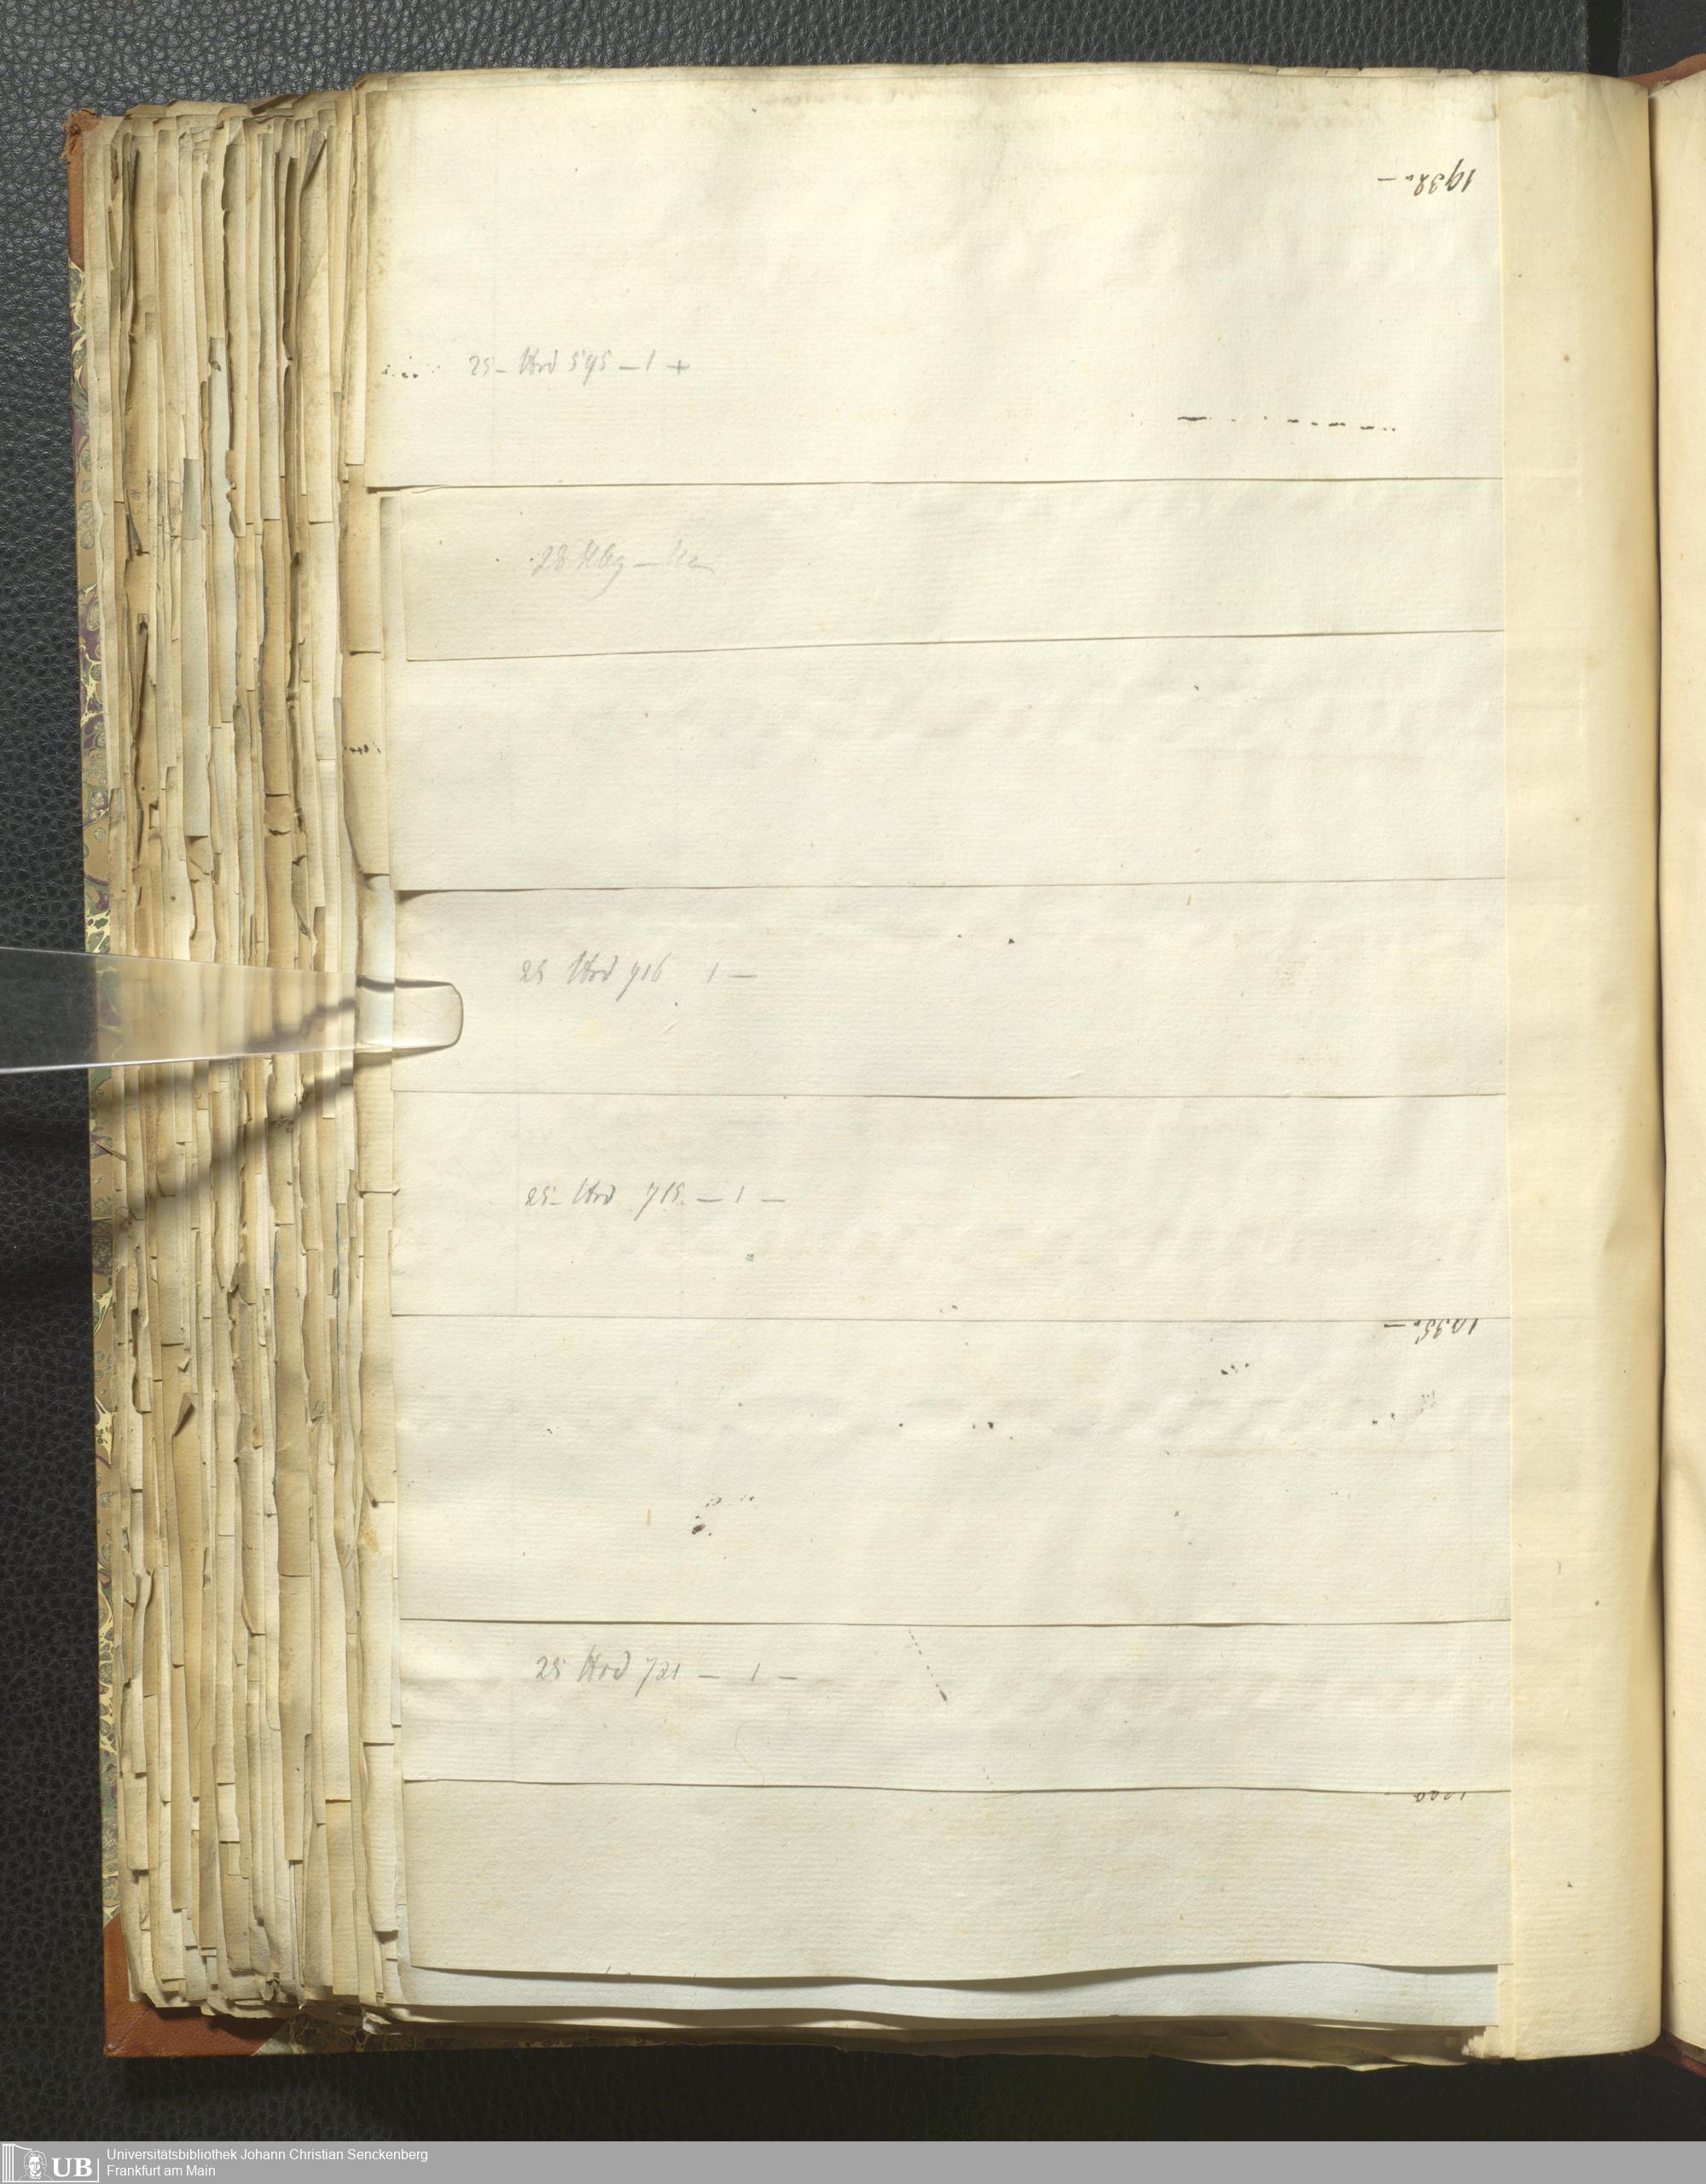 1932. —
25 – Hrd 595 – 1 +
28
25 Hrd 716 1 —
25 – Hrd 715. — 1 —
1935. —
25 Hrd 721 — 1 —
UB Universitätsbibliothek Johann Christian Senckenberg
Frankfurt am Main